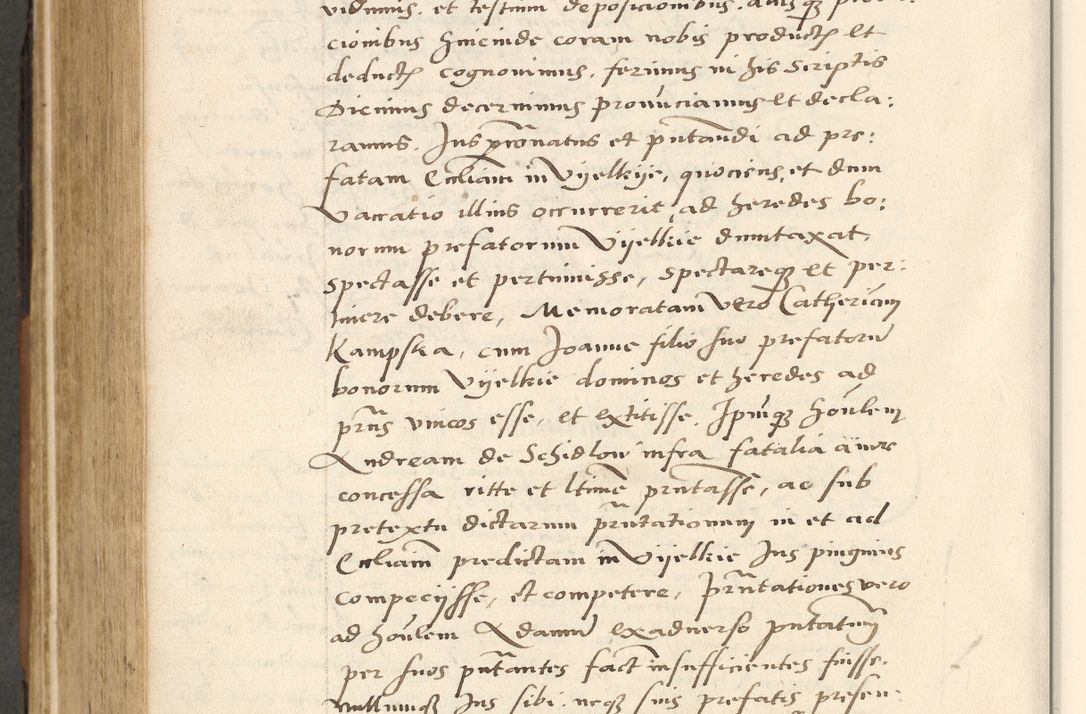 vidimus, et testium deposicionibus, aliisq̃ pro:
cionibus hincinde coram nobis product̃ et
deduct̃ cognovimus, ferimus in his scriptis
Dicimus decernimus pronunciamus et decla:
ramus. Jus pr̃onatus et pñtandi ad pre:
fatam Eccliam in Vyelkye, quociens, et dum
vaccatio illius occurrerit, ad heredes bo:
norum prefatorum Vyelkie dumtaxat,
spectasse et pertinuisse, spectareq̃ et per:
tinere debere, Memoratam vero Catherinam
Kampska, cum Joanne filio suo prefatorũ
bonorum Vyelkie dominos et heredes ad
pñs unicos esse, et extitisse, Ipsumq̃ hõnlem
Andream de Schidlow infra fatalia a iure
concessa ritte et ltime pñtasse, ac sub
pretextu dictarum pñtationum in et ad
Eccliam predictam in Vyelkie Jus pinguius
competijsse, et competere, Pñtationes vero
ad hõnlem Adamum ex adverso pñtatum
per suos pñtantes fact̃ insufficientes fuisse,
nullumq̃ Jus sibi, neq̃ suis prefatis presen: